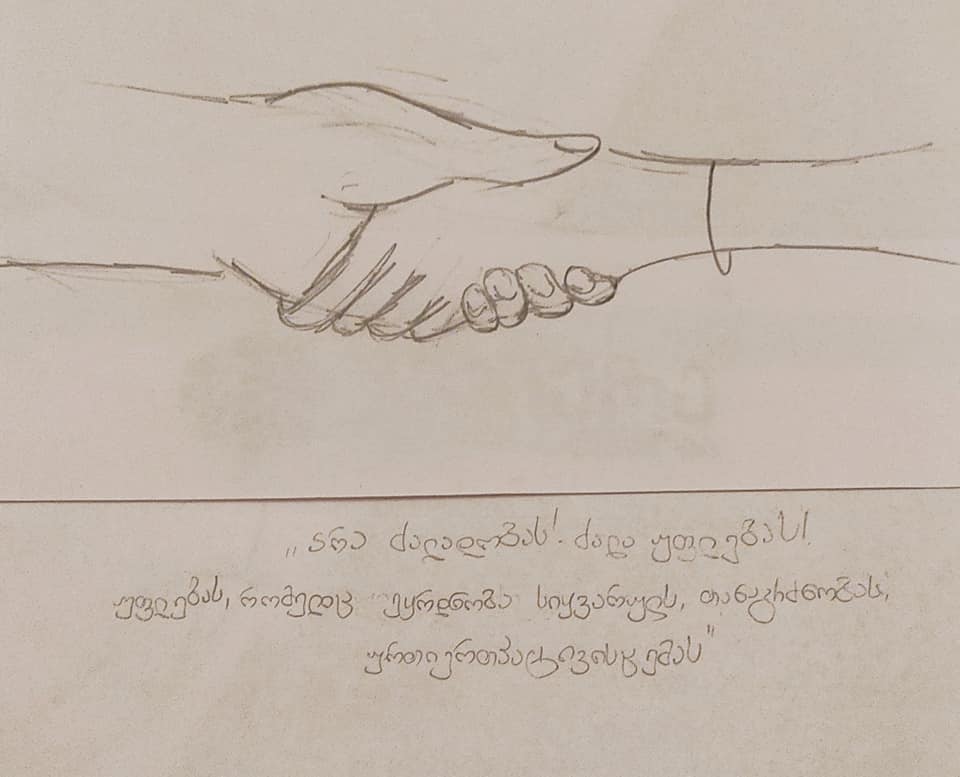 „არა ძალადობას! ძალა უფლებას!
უფლებას, რომელიც ეყრდნობა სიყვარულს, თანაგრძნობას,
ურთიერთპატივისცემას"